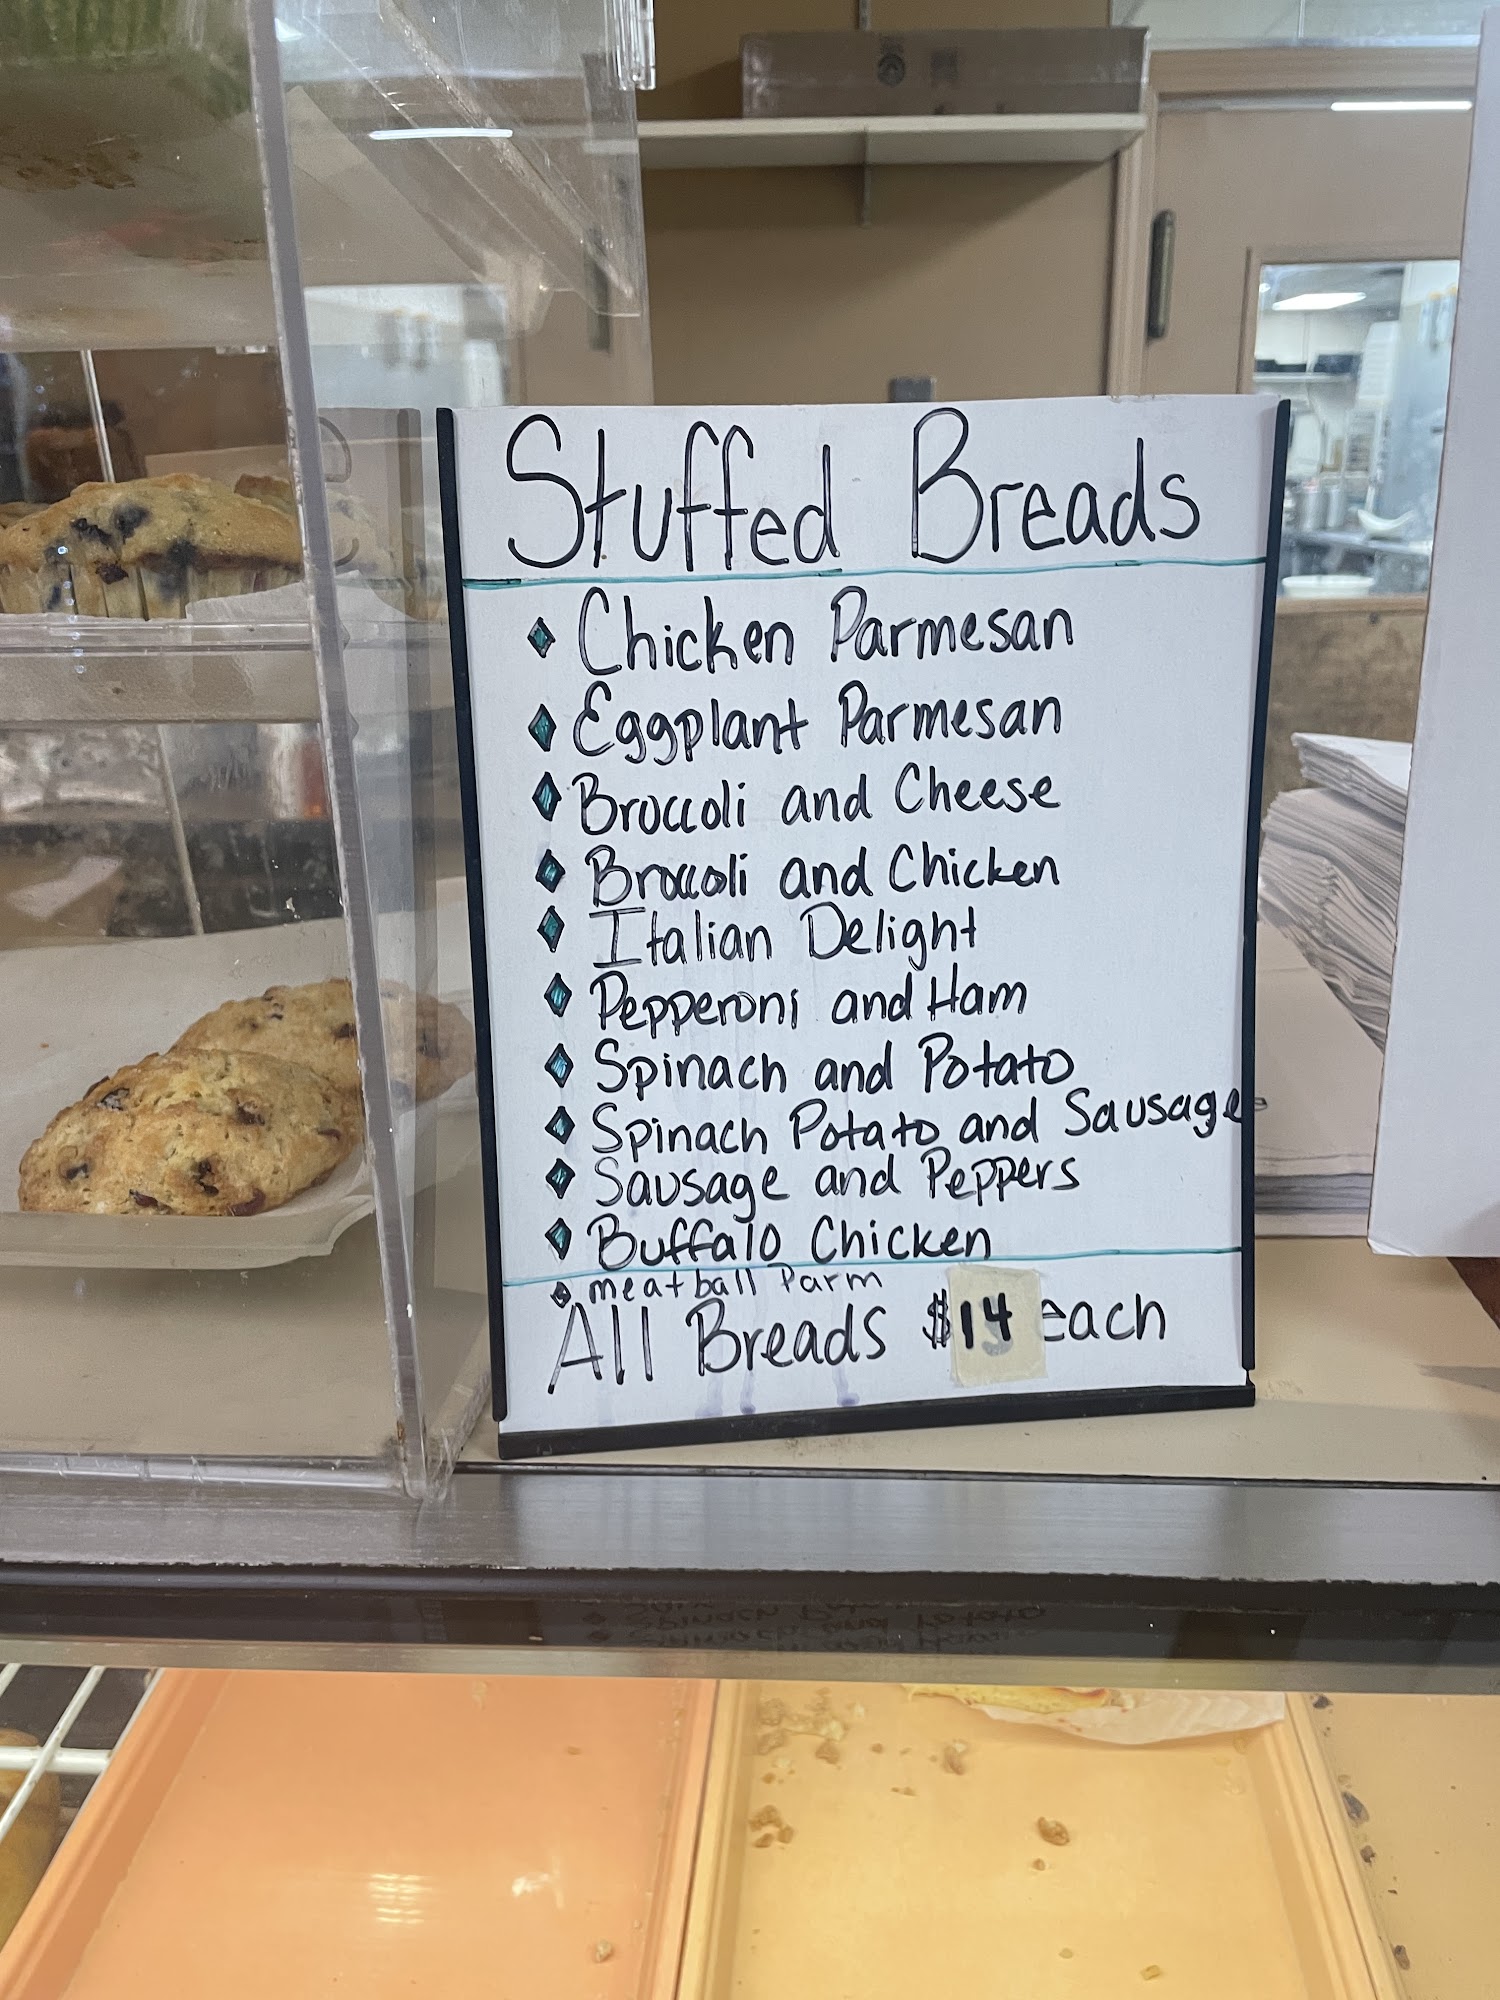 Stuffed Breads
Chicken Parmesan
Eggplant Parmesan
Broccoli and Cheese
Broccoli and Chicken
Italian Delight
Pepperoni and Ham
Spinach and Potato
Spinach Potato and Sausage
Sausage and Peppers
Buffalo Chicken
meatball Parm
All Breads $14 each